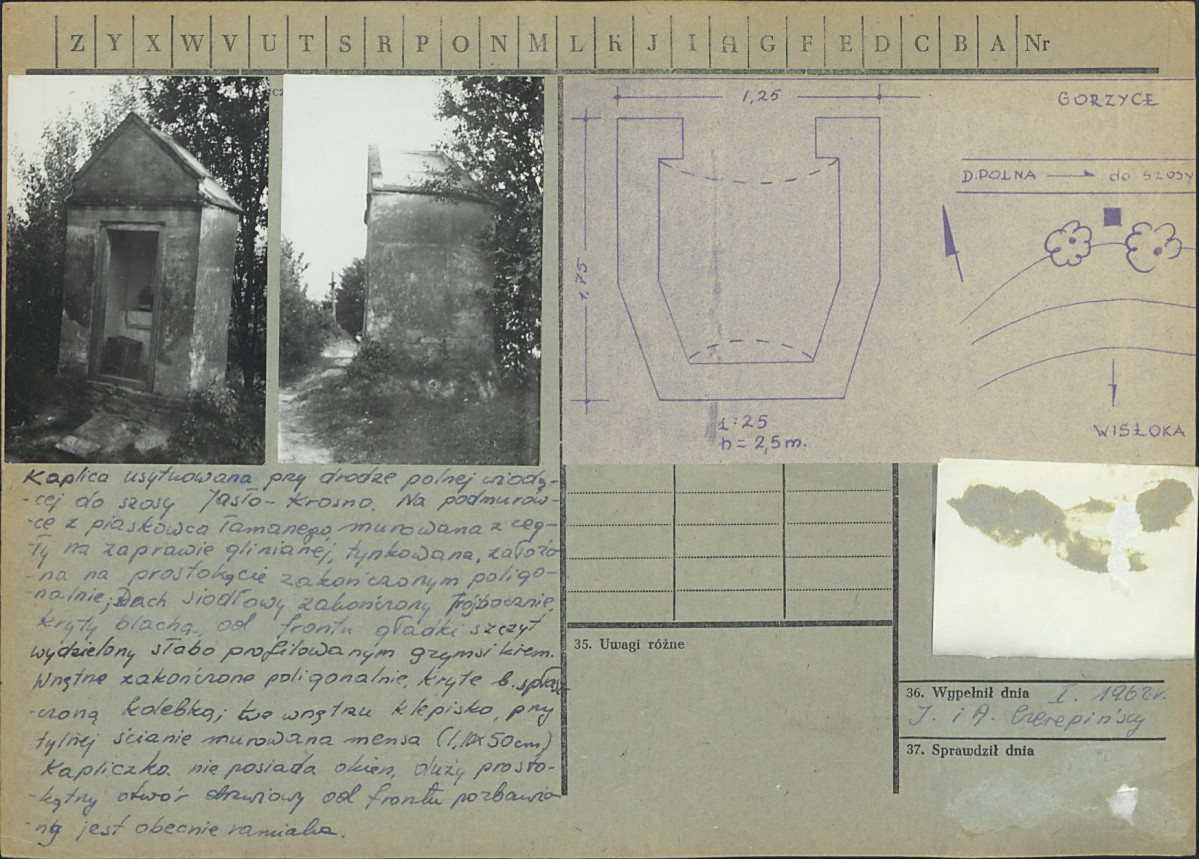 Z Y X W V U T S R P O N M L K J I H G F E D C B A Nr
1,25
GORZYCE
D.POLNA → do SZOSY
1,75
1:25
h = 2,5 m.
WISŁOKA
Kaplica usytuowana przy drodze polnej wiodą-
-cej do szosy Jasło - Krosno. Na podmurów-
-ce z piaskowca łamanego, murowana z ceg-
-ły na zaprawie glinianej, tynkowana, założo
-na na prostokącie zakończonym poligo-
-nalnie; Dach siodłowy zakończony trójbocznie,
kryty blachą, od frontu gładki szczyt
wydzielony słabo profilowanym gzymsikiem.
Wnętrze zakończone poligonalnie, kryte b. spłasz-
-czoną kolebką; we wnętrzu klepisko, przy
tylnej ścianie murowana mensa (1,10x50cm)
Kapliczka nie posiada okien, duży prosto-
-kątny otwór drzwiowy od frontu pozbawio
-ny jest obecnie zamknięcia.
35. Uwagi różne
36. Wypełnił dnia I. 1962 r.
J. i A. Czerepińscy
37. Sprawdził dnia